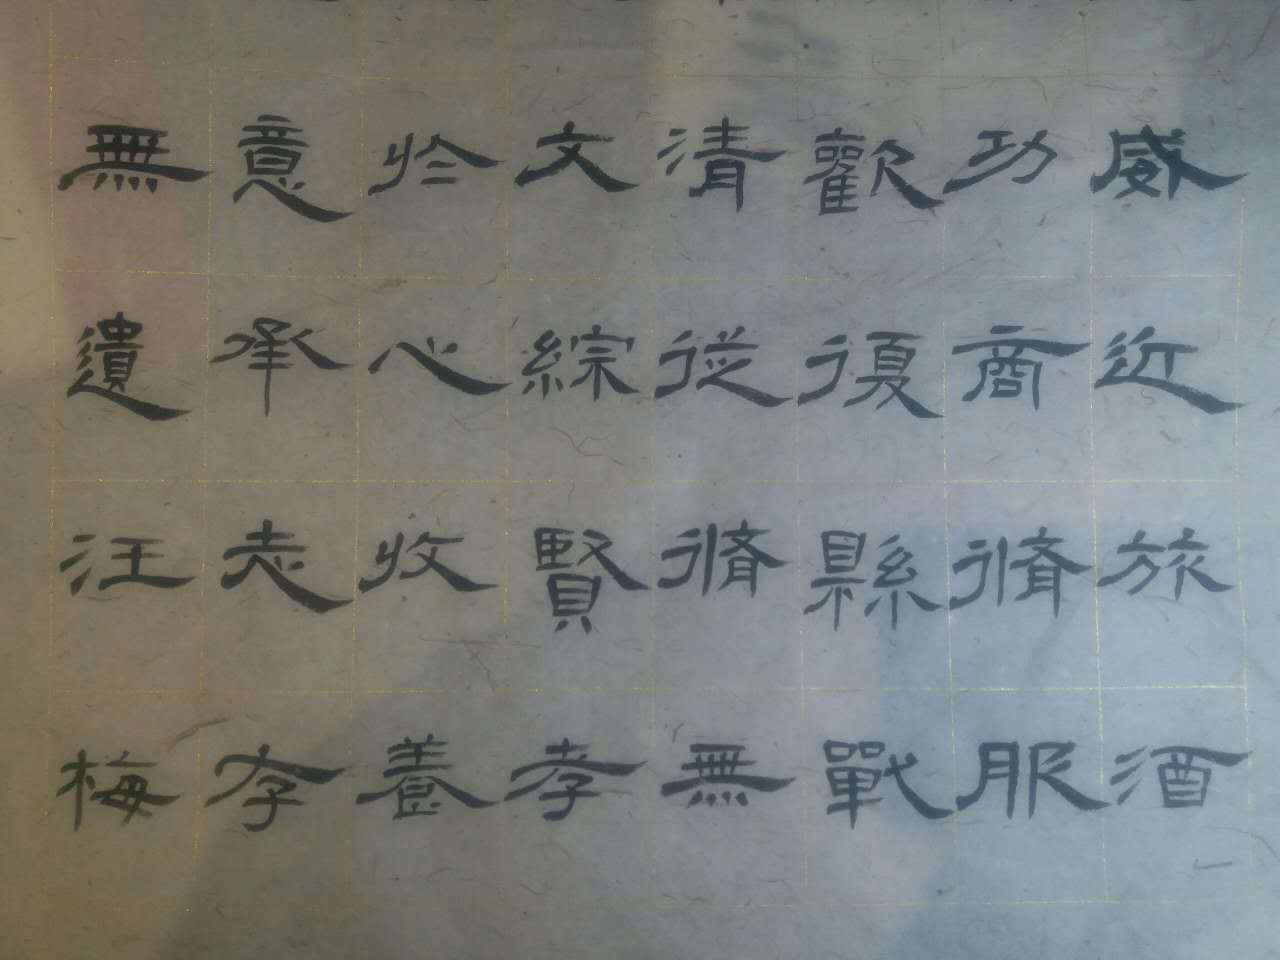 威近旅酒
功商脩服
歡復縣戰
清從脩無
文綜賢孝
於心收養
意承志存
無遺汪梅